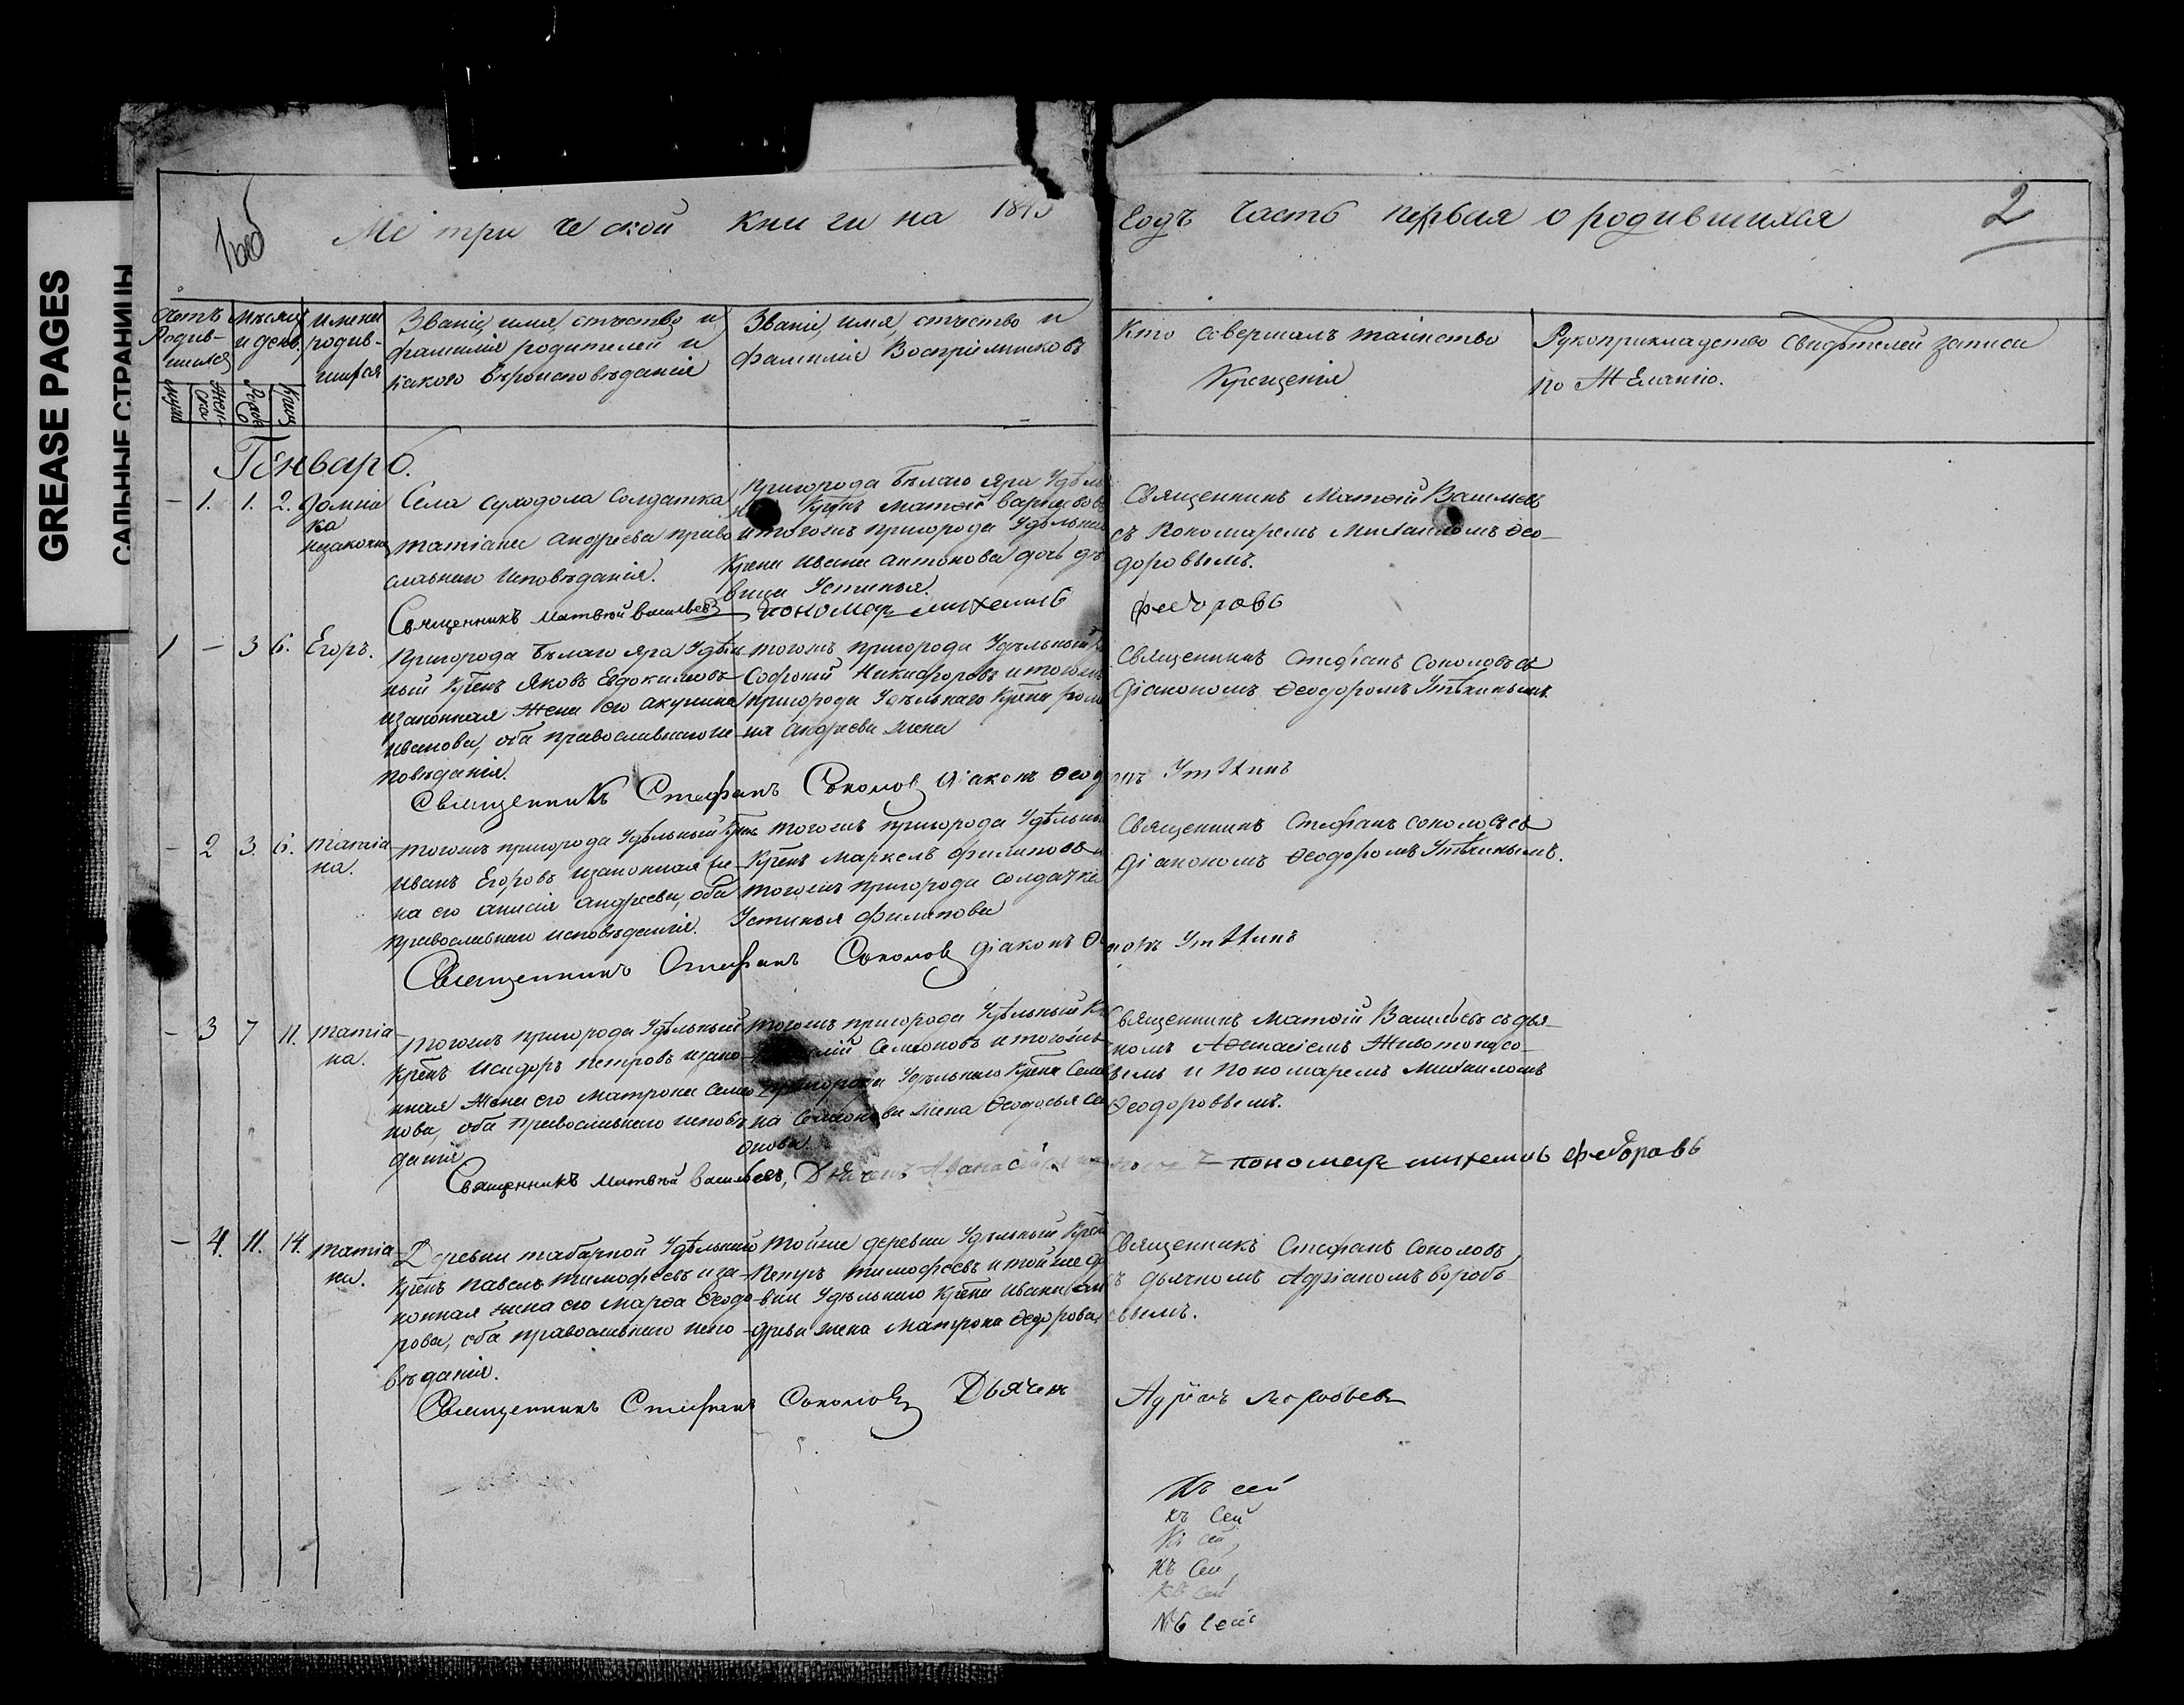 GREASE PAGES
САЛЬНЫЕ СТРАНИЦЫ
Метрической книги на 184 Годъ часть первая о родившихся
2
Счетъ Родив-шихся
Мѣсяцъ и день
Имена родив-шихся
Званіе, имя, отчество и
фамилія родителей и
какого вѣроисповѣданія
Званіе, имя, отчество и
фамилія Воспріемниковъ
Кто совершалъ таинство
Крещенія
Рукоприкладство свидѣтелей записи
по Желанію.
Генварь.
– 1. 1. 2. Домни
ка
незаконн
Села Суходола Солдатка
татіана Андреева право
славнаго исповѣданія.
Пригорода Бѣлаго Яра Удѣль
Крнъ Матөей
и тогожъ пригорода Удѣльнаго
Крена Ивана Антонова дочь дѣ
вица Устинья.
Священникъ Матөей Васильевъ
съ Пономаремъ Михаиломъ Өео-
доровымъ.
Священникъ Матвѣй Васильевъ пономарь михаилъ федоровъ
1 – 3 6. Егоръ.
Пригорода Бѣлаго Яра Удѣль
ный Крѣнъ Яковъ Евдокимовъ
и законная жена его акулина
иванова, оба православнаго ис
повѣданія.
тогожъ пригорода Удѣльный
Софроній Никифоровъ и тогожъ
пригорода Удѣльнаго Крена рома
на Андреева жена
Священникъ Стефанъ Соколовъ съ
Діакономъ Өеодоромъ Утѣхинымъ.
Священникъ Стефанъ Соколовъ Діаконъ Өеодоръ Утѣхинъ
– 2 3. 6. татіа
на.
тогожъ пригорода Удѣльный Крнъ
Иванъ Егоровъ и законная же
на его анисія андреева, оба
православнаго исповѣданія.
тогожъ пригорода Удѣльный
Крѣнъ Маркелъ Филиповъ и
тогожъ пригорода солдатка
Устинья Филипова
Священникъ Стефанъ Соколовъ съ
Діакономъ Өеодоромъ Утѣхинымъ.
Священникъ Стефанъ Соколовъ Діаконъ Утѣхинъ
– 3 7 11. татіа
на.
тогожъ пригорода Удѣльный
Крѣнъ Исидоръ Петровъ и зако
нная жена его Матрона Семіо
нова, оба православнаго исповѣ
данія
тогожъ пригорода Удѣльный
Семіоновъ и тогожъ
пригорода Удѣльнаго Крена Семіо
на Семіонова жена Өеодосья Сими
онова.
Священникъ Матөей Васильевъ съ дья
комъ Аөанасіемъ Животоносо-
вымъ и Пономаремъ Михаиломъ
Өеодоровымъ.
Священникъ Матвѣй Васильевъ, Дьячекъ Афанасій пономарь михаилъ федоровъ
– 4. 11. 14. татіа
на.
Деревни табарной Удѣльный
Крѣнъ Павелъ тимофеевъ и за
конная жена его Марөа Өеодо
рова, оба православнаго испо
вѣданія.
Тойже деревни Удѣльный Крен
Петръ тимофеевъ и тойже де
вни Удѣльнаго Крена Ивана Ан
дреева жена Матрона Өедорова
Священникъ Стефанъ Соколовъ
ъ дьячкомъ Адріаномъ Воробь
евымъ.
Священникъ Стефанъ Соколовъ Дьячекъ Адріанъ Воробьевъ
Къ сей
къ Сей
Къ сей
Къ Сей
Къ сей
Къ сей